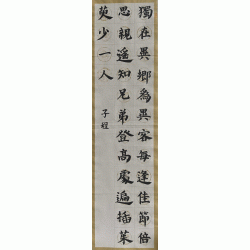 獨在異鄉為異客每逢佳節倍
思親遙知兄弟登高處遍插茱
萸少一人